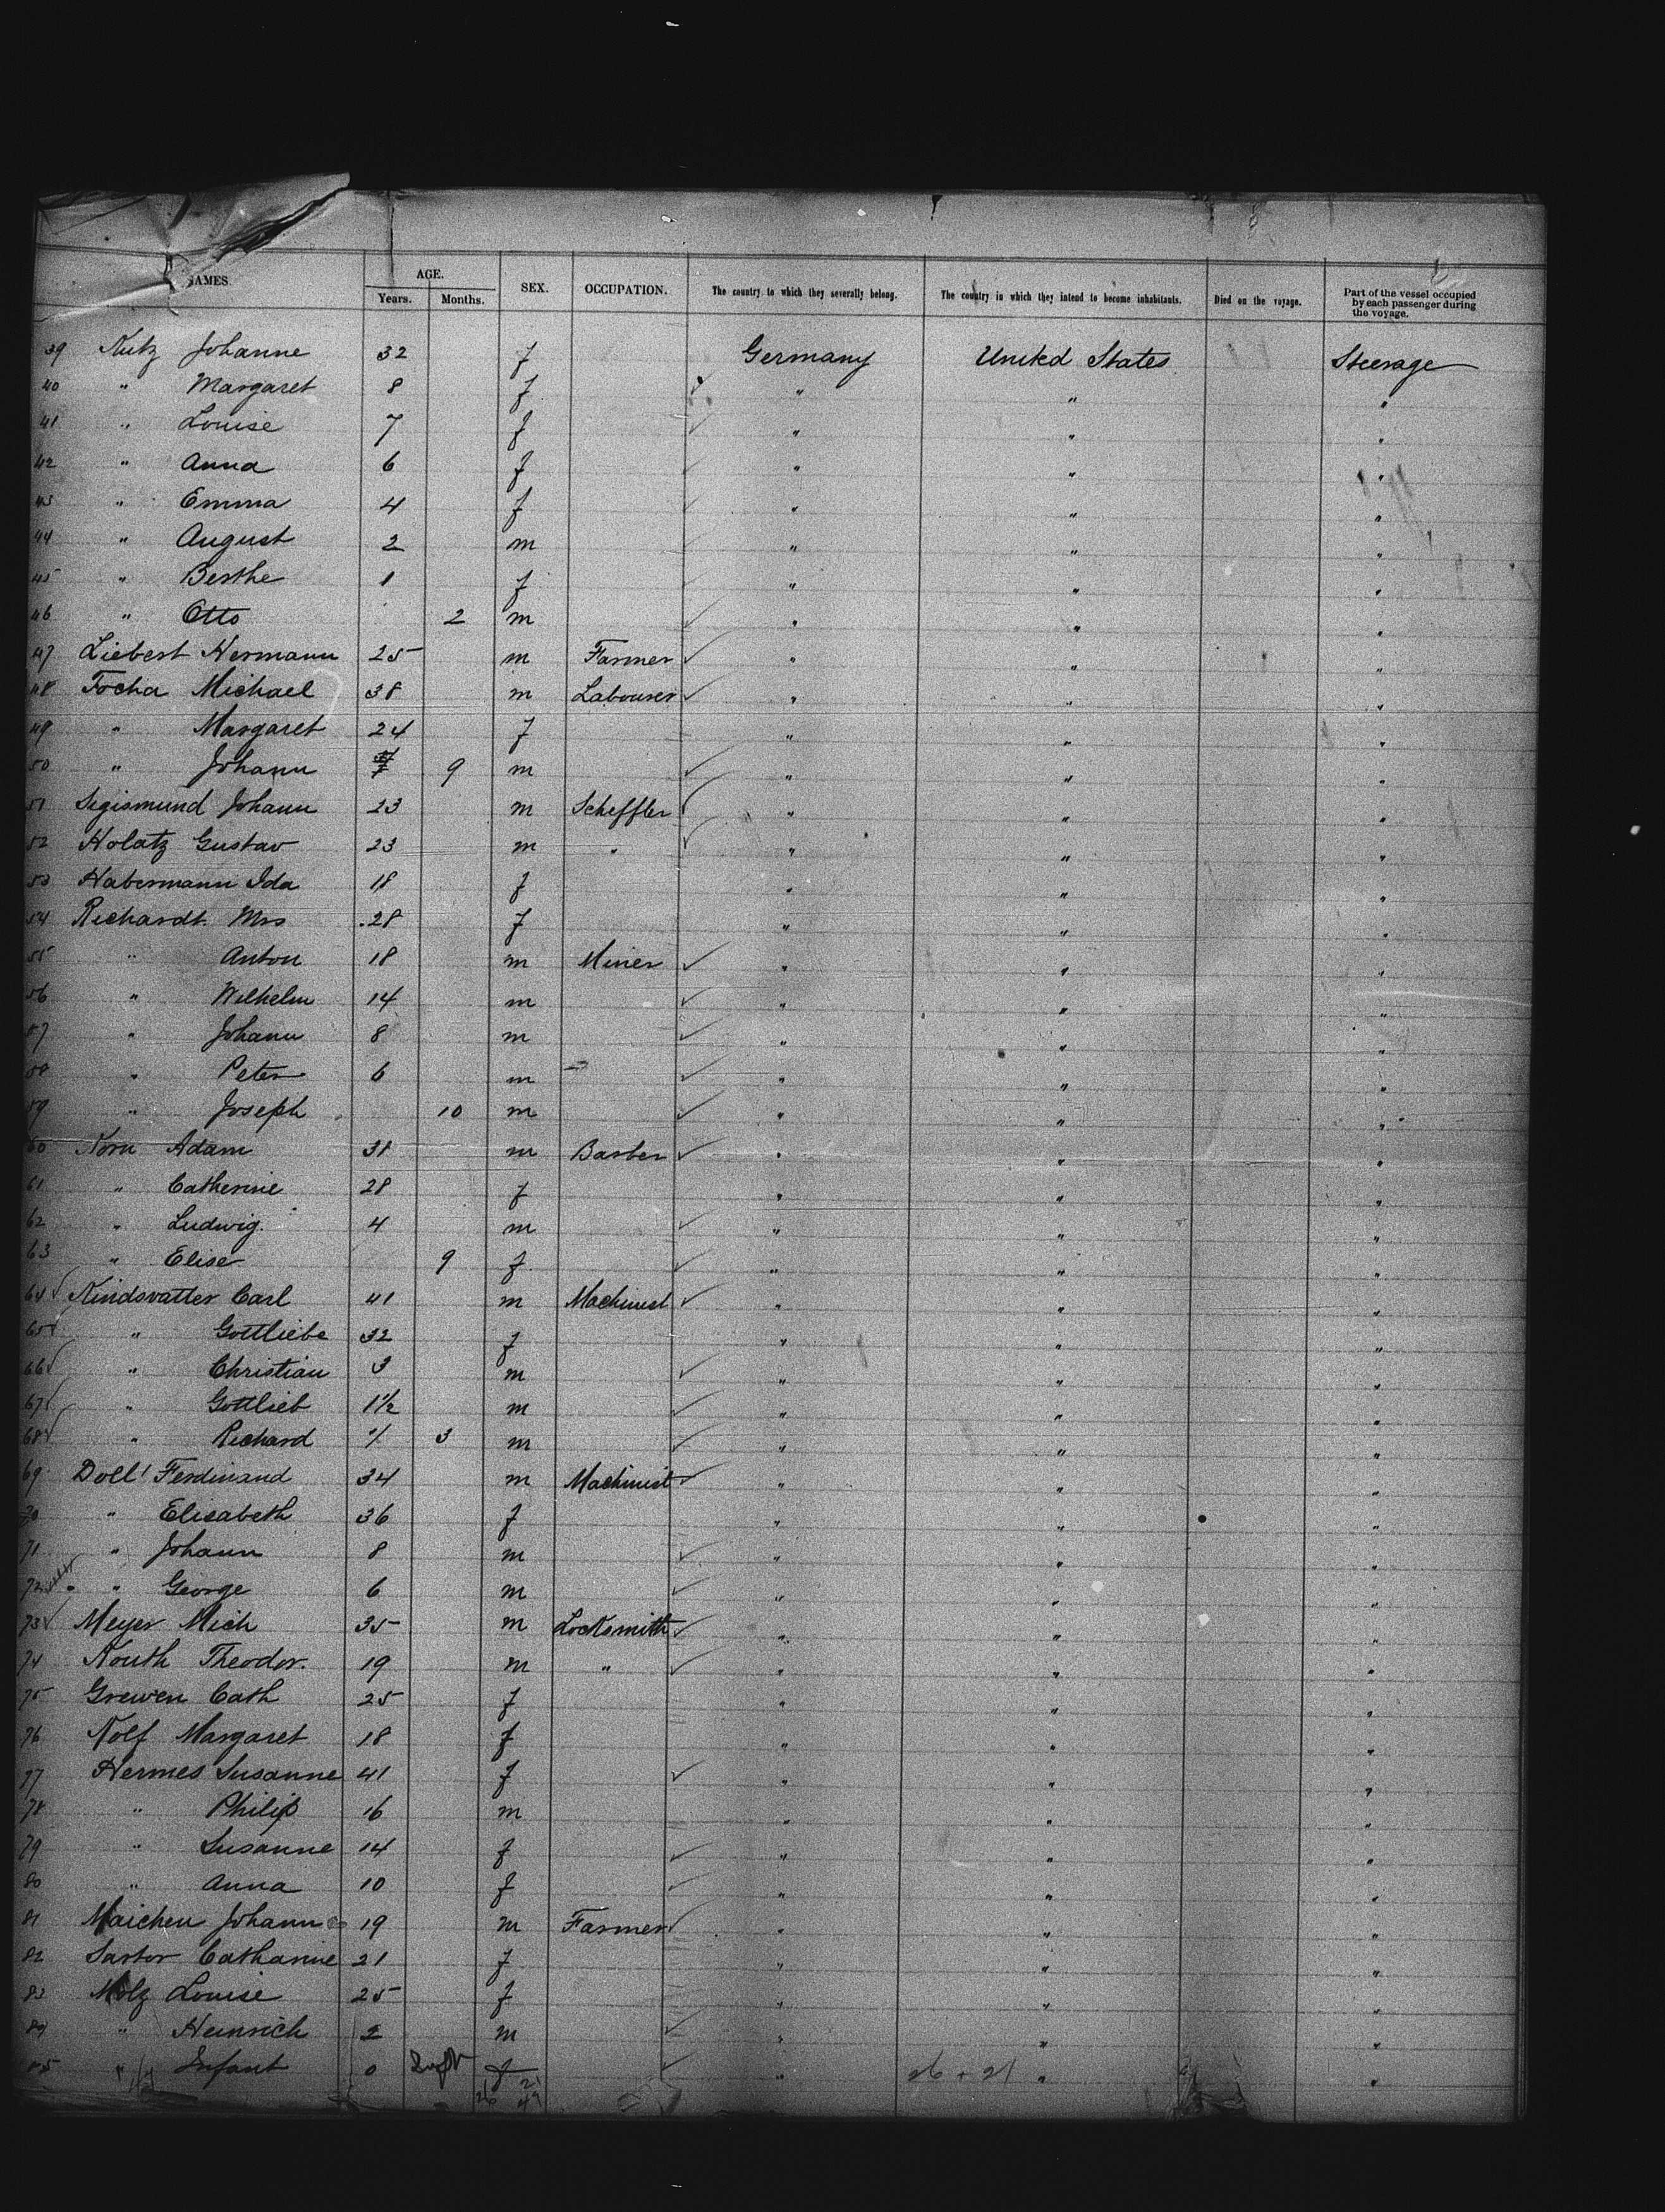 NAMES. AGE. Years. Months. SEX. OCCUPATION. The country to which they severally belong. The country in which they intend to become inhabitants. Died on the voyage. Part of the vessel occupied by each passenger during the voyage.
39 Kutz Johanne 32 f Germany United States Steerage
40 " Margaret 8 f " " "
41 " Louise 7 f " " "
42 " Anna 6 f " " "
43 " Emma 4 f " " "
44 " August 2 m " " "
45 " Berthe 1 f " " "
46 " Otto 2 m " " "
47 Liebert Hermann 25 m Farmer " " "
48 Focha Michael 38 m Labourer " " "
49 " Margaret 24 f " " "
50 " Johann 9 m " " "
51 Sigismund Johann 23 m Scheffler " " "
52 Holatz Gustav 23 m " " " "
53 Habermann Ida 18 f " " "
54 Richardt Mrs 28 f " " "
55 " Anton 18 m Miner " " "
56 " Wilhelm 14 m " " "
57 " Johann 8 m " " "
58 " Peter 6 m " " "
59 " Joseph 10 m " " "
60 Korn Adam 38 m Barber " " "
61 " Catherine 28 f " " "
62 " Ludwig. 4 m " " "
63 " Elise 9 f " " "
64 Kindsvatter Carl 41 m Machinist " " "
65 " Gottliebe 32 f " " "
66 " Christian 3 m " " "
67 " Gottlieb 1½ m " " "
68 " Richard 3 m " " "
69 Doll Ferdinand 34 m Machinist " " "
70 " Elisabeth 36 f " " "
71 " Johann 8 m " " "
72 " George 6 m " " "
73 Meyer Mich 35 m Locksmith " " "
74 Kouth Theodor. 19 m " " " "
75 Grewen Cath 25 f " " "
76 Nolf Margaret 18 f " " "
77 Hermes Susanne 41 f " " "
78 " Philip 16 m " " "
79 " Susanne 14 f " " "
80 " Anna 10 f " " "
81 Maichen Johann 19 m Farmer " " "
82 Sartor Catharine 21 f " " "
83 Molz Louise 25 f " " "
84 " Heinrich 2 m " " "
85 " Infant 0 f " " "
26 + 21
26 21
47